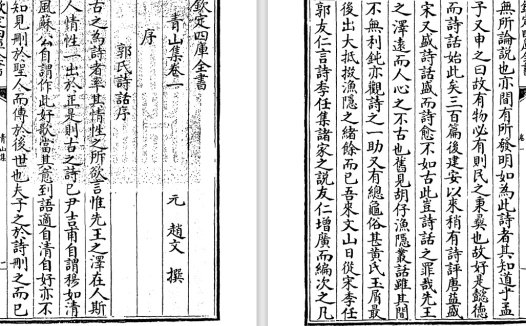 欽定四庫全書
青山集卷一
元 趙文 撰
序
郭氏詩話序
古之為詩者率其情性之所欲言惟先王之澤在人斯
人情性一出於正是則古之詩已尹吉甫自謂穆如清
風蘇公自謂作此好歌當其意到語適自清自好亦不
如見刪於聖人而傳於後世也夫子之於詩刪之而已
欽定四庫全書
青山集
無所論說也亦間有所發明如為此詩者其知道乎孟
子又申之曰故有物必有則民之秉彝也故好是懿德
而詩話始此矣三百篇後建安以來稍有詩評唐益盛
宋又盛詩話盛而詩愈不如古此豈詩話之罪哉先王
之澤遠而人心之不古也舊見胡仔漁隱叢話雖其間
不無利鈍亦觀詩之一助又有總龜俗甚黃氏玉屑最
後出大抵掇漁隱之緒餘而已吾來文山日從宋季任
郭友仁言詩季任集諸家之說友仁增廣而編次之凡